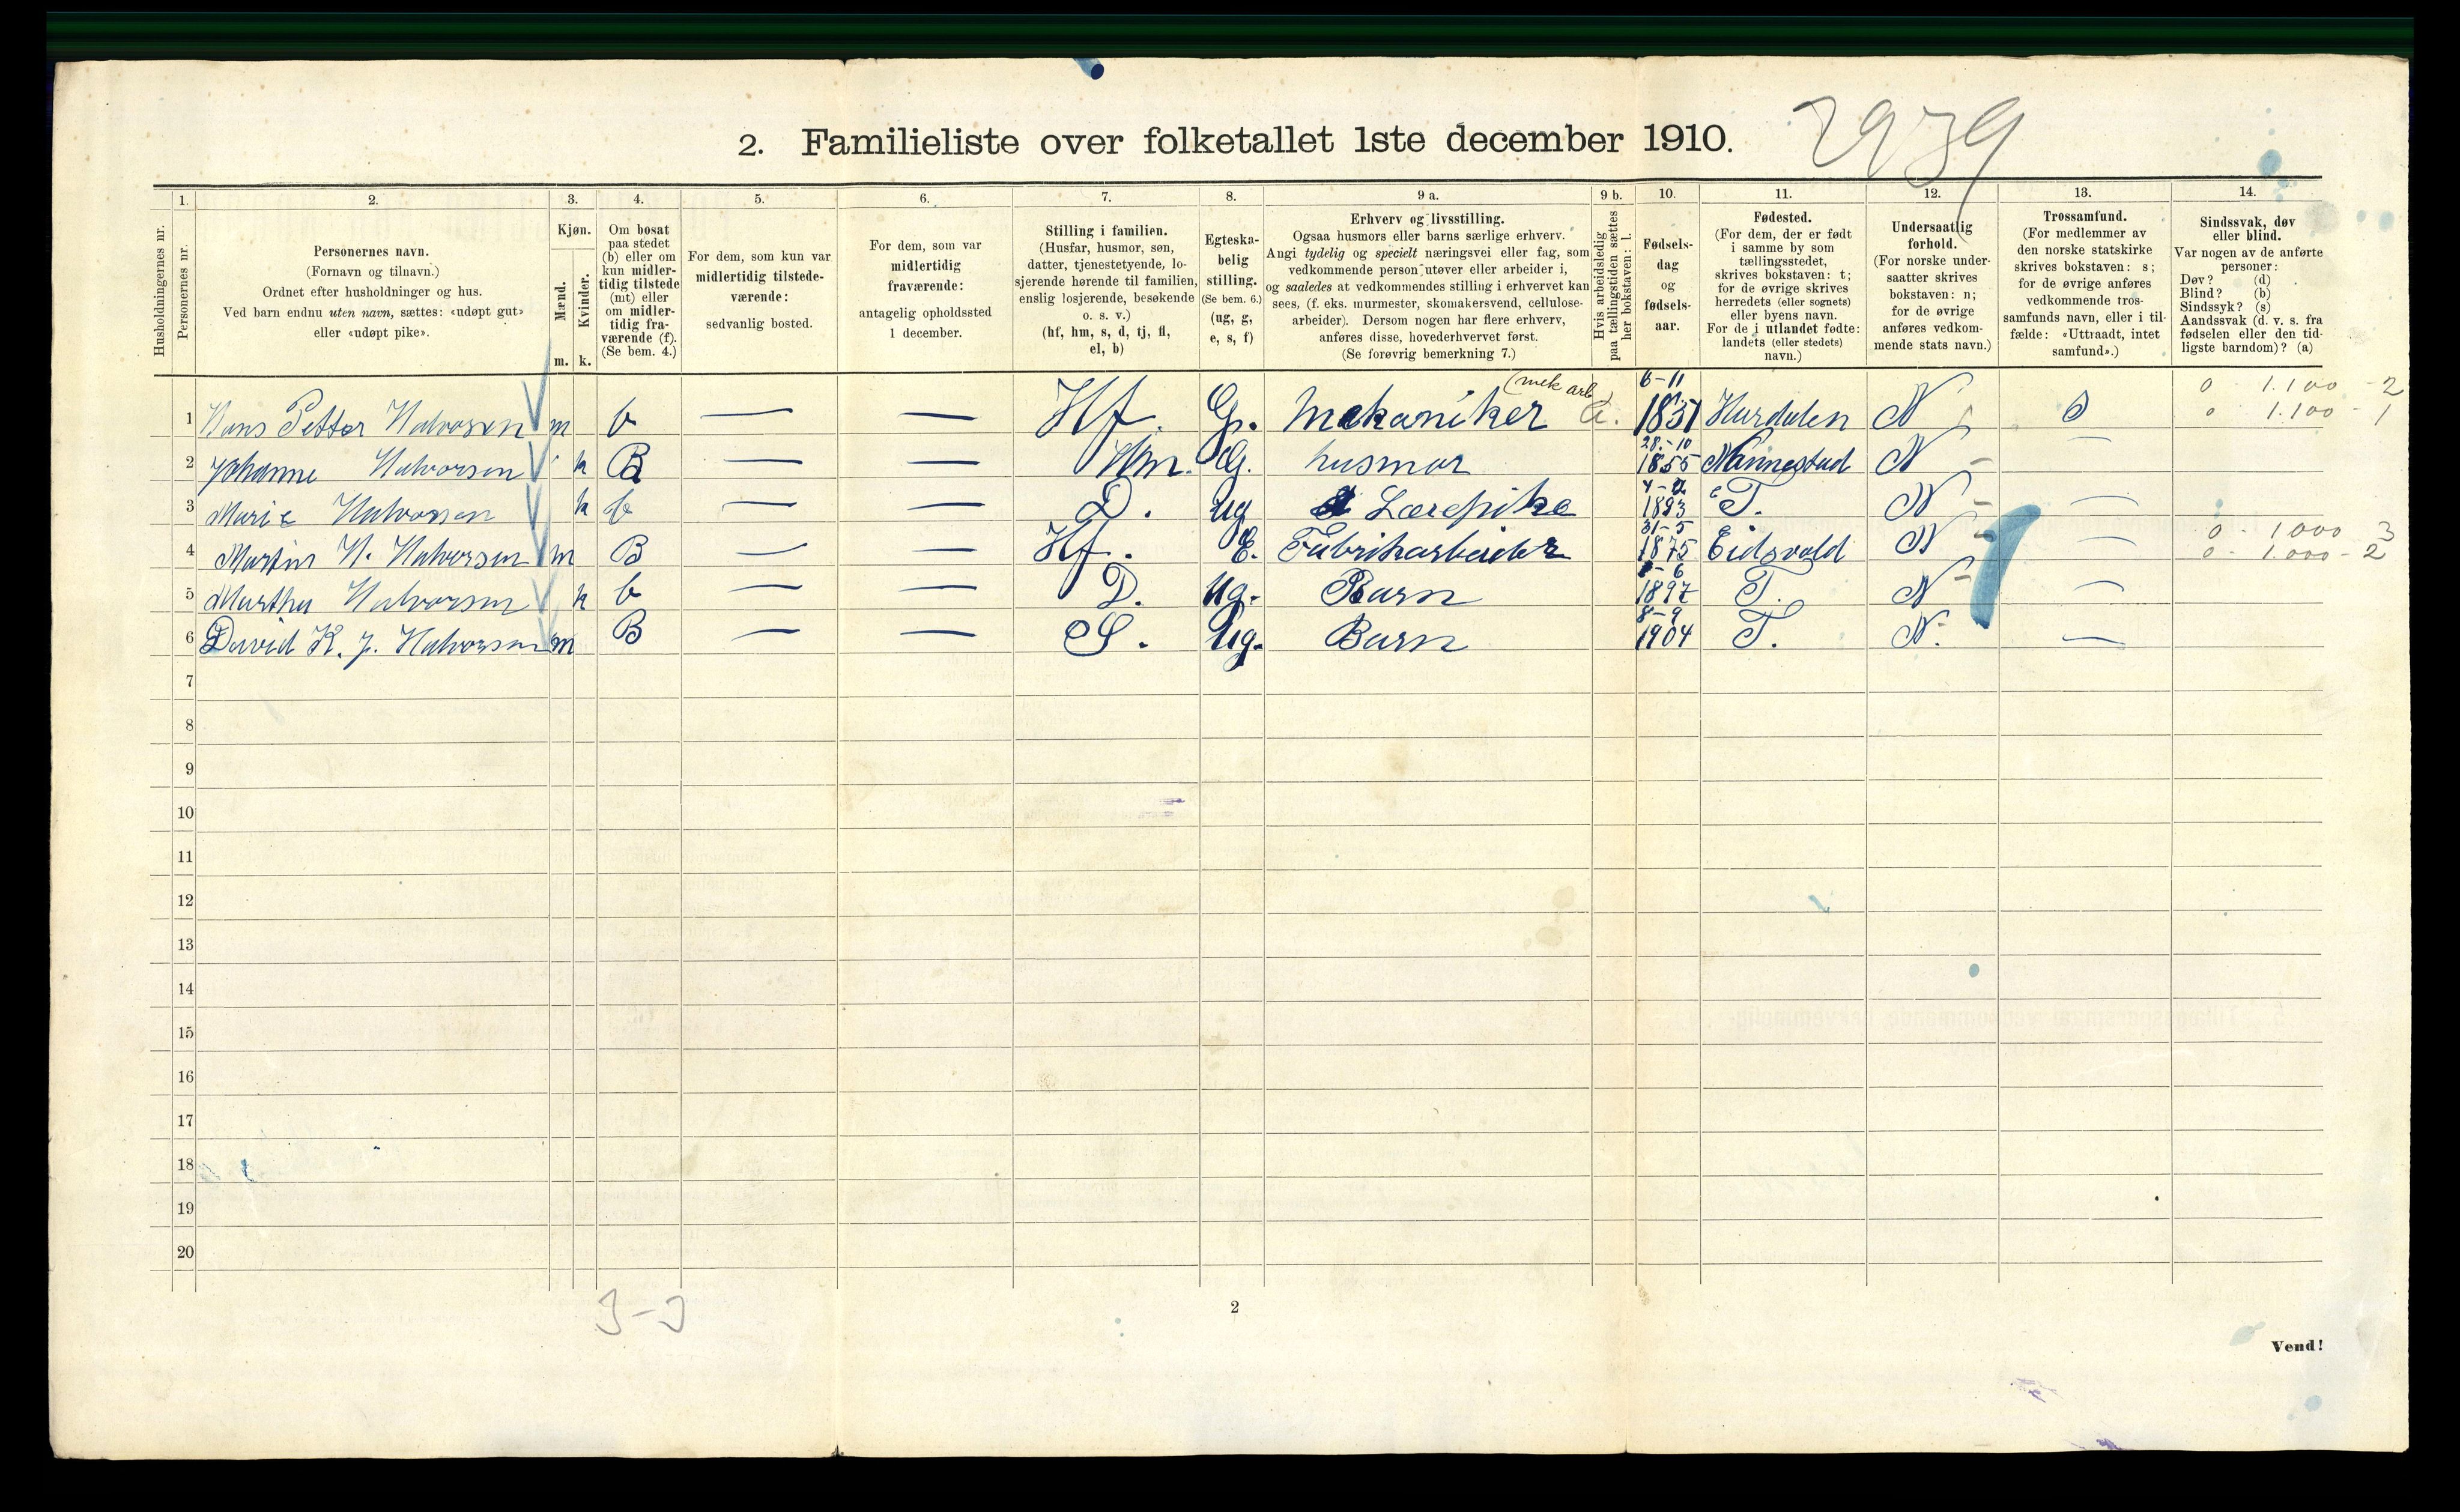 2939
2. Familieliste over folketallet 1ste december 1910.
Husholdningernes nr.
1. Personernes nr.
2. Personernes navn. (Fornavn og tilnavn.) Ordnet efter husholdninger og hus. Ved barn endnu uten navn, sættes: «udøpt gut» eller «udøpt pike».
3. Kjøn. Mænd. m. Kvinder. k.
4. Om bosat paa stedet (b) eller om kun midlertidig tilstede (mt) eller om midlertidig fraværende (f). (Se bem. 4.)
5. For dem, som kun var midlertidig tilstedeværende: sedvanlig bosted.
6. For dem, som var midlertidig fraværende: antagelig opholdssted 1 december.
7. Stilling i familien. (Husfar, husmor, søn, datter, tjenestetyende, losjerende hørende til familien, enslig losjerende, besøkende o. s. v.) (hf, hm, s, d, tj, fl, el, b)
8. Egteskabelig stilling. (Se bem. 6.) (ug, g, e, s, f)
9 a. Erhverv og livsstilling. Ogsaa husmors eller barns særlige erhverv. Angi tydelig og specielt næringsvei eller fag, som vedkommende person utøver eller arbeider i, og saaledes at vedkommendes stilling i erhvervet kan sees, (f. eks. murmester, skomakersvend, cellulosearbeider). Dersom nogen har flere erhverv, anføres disse, hovederhvervet først. (Se forøvrig bemerkning 7.)
9 b. Hvis arbeidsledig paa tællingstiden sættes her bokstaven: l.
10. Fødselsdag og fødselsaar.
11. Fødested. (For dem, der er født i samme by som tællingsstedet, skrives bokstaven: t; for de øvrige skrives herredets (eller sognets) eller byens navn. For de i utlandet fødte: landets (eller stedets) navn.)
12. Undersaatlig forhold. (For norske undersaatter skrives bokstaven: n; for de øvrige anføres vedkommende stats navn.)
13. Trossamfund. (For medlemmer av den norske statskirke skrives bokstaven: s; for de øvrige anføres vedkommende trossamfunds navn, eller i tilfælde: «Uttraadt, intet samfund».)
14. Sindssvak, døv eller blind. Var nogen av de anførte personer: Døv? (d) Blind? (b) Sindssyk? (s) Aandssvak (d. v. s. fra fødselen eller den tidligste barndom)? (a)
1 Hans Petter Halvorsen m b — — Hf. G. Mekaniker (mek arb) a. 6-11 1851 Hurdalen N s 0 - 1.100 - 2
0 1.100 - 1
2 Johanne Halvorsen k B — — Hm. G. husmor 28-10 1855 Nannestad N —
3 Marie Halvorsen k b — — D. Ug Lærepike 1893 T. N —
4 Martin H. Halvorsen m B — — Hf. E. Fabrikarbeider 31-5 1875 Eidsvold N — 0 - 1000 3
0 - 1.000 - 2
5 Martha Halvorsen k b — — D. Ug. Barn 1897 T. N —
6 David K. J. Halvorsen m B — — S. Ug. Barn 8-9 1904 T. N. —
7
8
9
10
11
12
13
14
15
16
17
18
19
20
3-3
2
Vend!